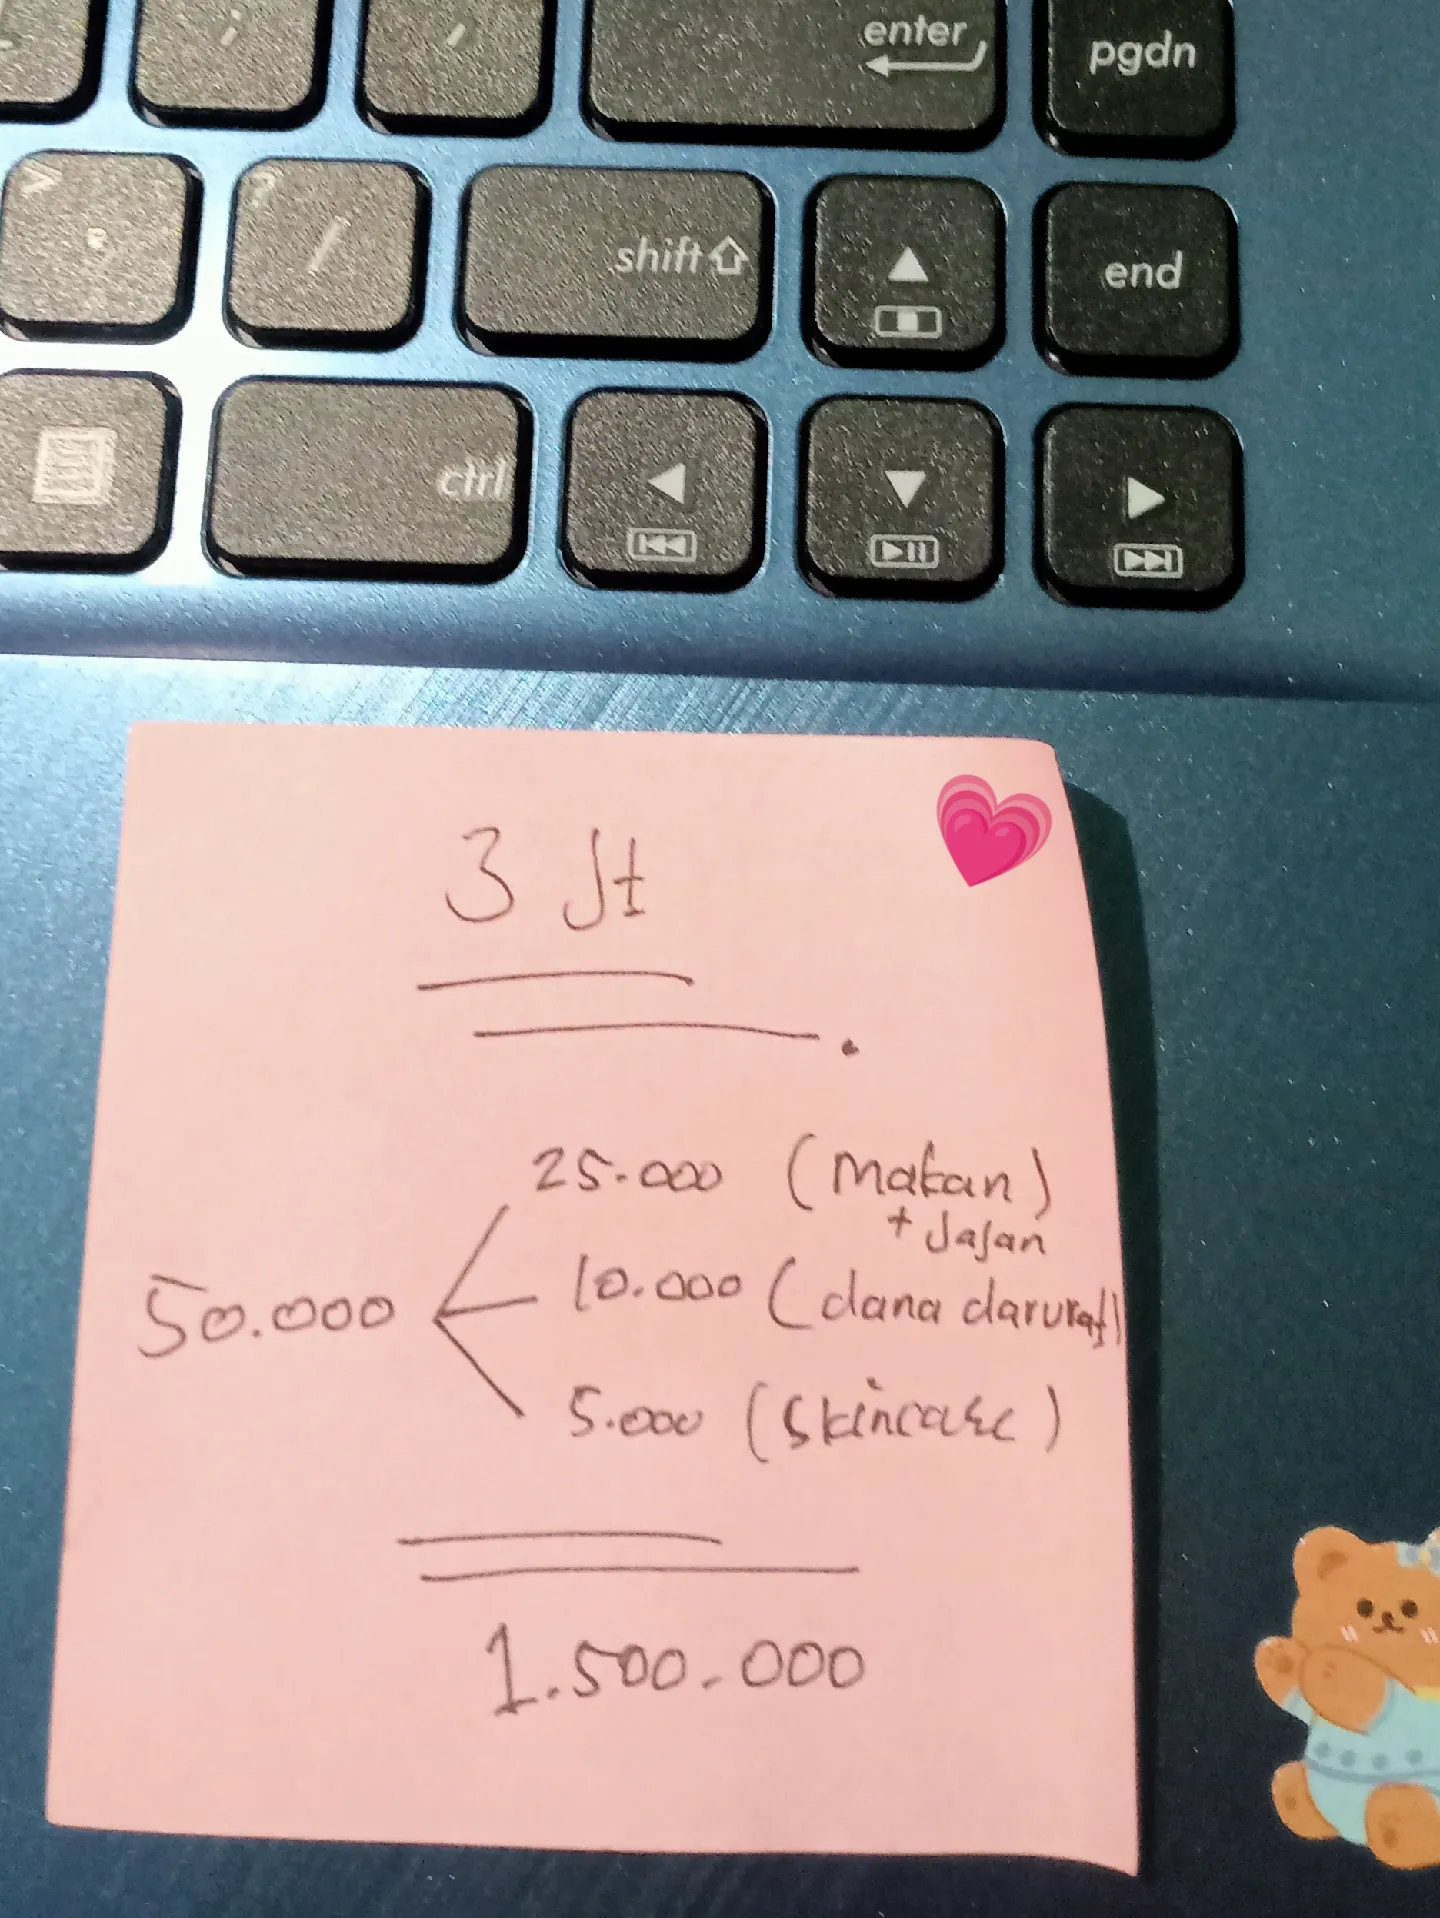 enter
pgdn
shift
end
ctrl
3 Jt
25.000 (Makan)
+ Jajan
50.000
10.000 (dana darurat)
5.000 (skincare)
1.500.000